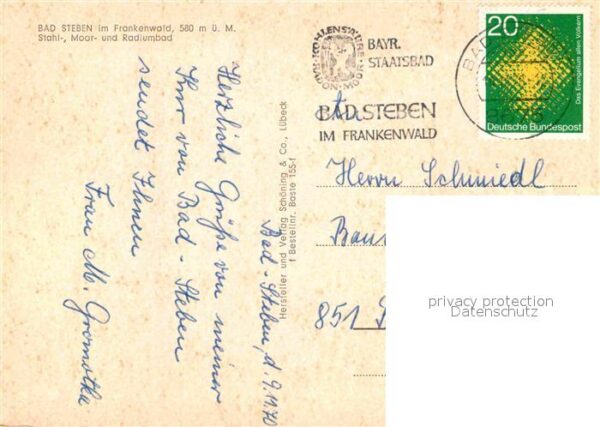 BAD STEBEN im Frankenwald, 580 m ü. M.
Stahl-, Moor- und Radiumbad
Herzliche Grüße von meiner
Kur von Bad - Steben
sendet Ihnen
Frau M. Gromotka
Bad-Steben, d. 9.11.70
Hersteller und Verlag Schöning & Co., Lübeck
Bestellnr. Baste 155
KOHLENSÄURE
RADON-MOOR
BAYR.
STAATSBAD
BAD STEBEN
IM FRANKENWALD
BAD
20
Das Evangelium allen Völkern
Deutsche Bundespost
An
Herrn Schmiedl
851
privacy protection
Datenschutz